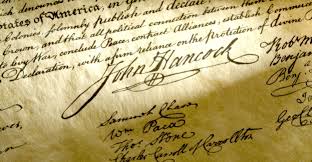 States of America, in Gen
solemnly publish and declare
and that all political connection between them
War, conclude Peace, contract Alliances, establish Commerce
Declaration, with a firm reliance on the protection of divine P
John Hancock
Rob M
Benjamin
Samuel Chase
Wm Paca
Thos Stone
Charles Carroll of Carrollton